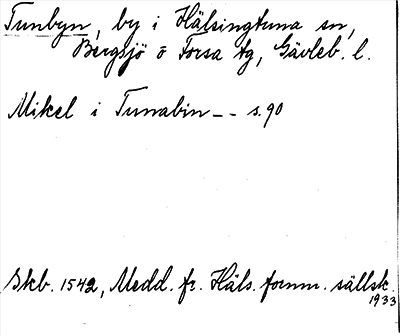 Tunbyn, by i Hälsingtuna sn,
Bergsjö o Forsa tg, Gävleb. l.
Mikel i Tunabin – – s. 90
Skb. 1542, Medd. fr. Häls. fornm. sällsk.
1933